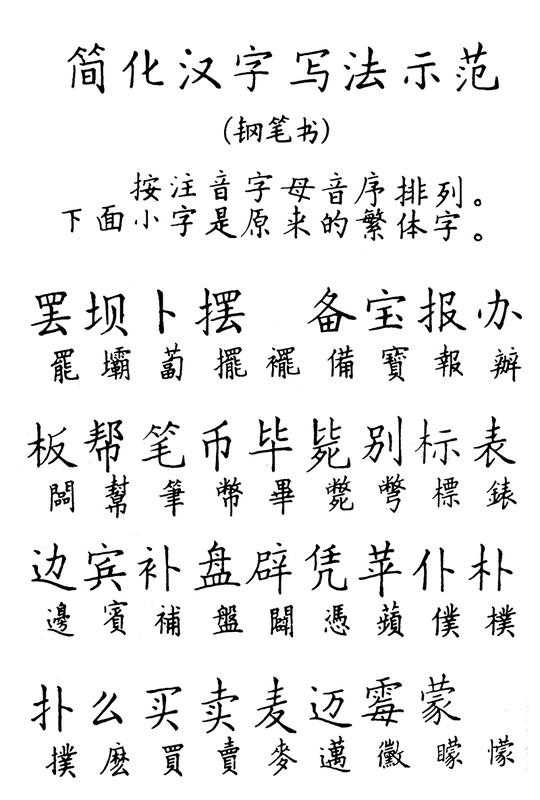 简化汉字写法示范
(钢笔书)
按注音字母音序排列。
下面小字是原来的繁体字。
罢坝卜摆 备宝报办
罷壩蔔擺襬備寶報辦
板帮笔币毕毙别标表
闆幫筆幣畢斃彆標錶
边宾补盘辟凭苹仆朴
邊賓補盤闢憑蘋僕樸
扑么买卖麦迈霉蒙
撲麽買賣麥邁黴矇懞